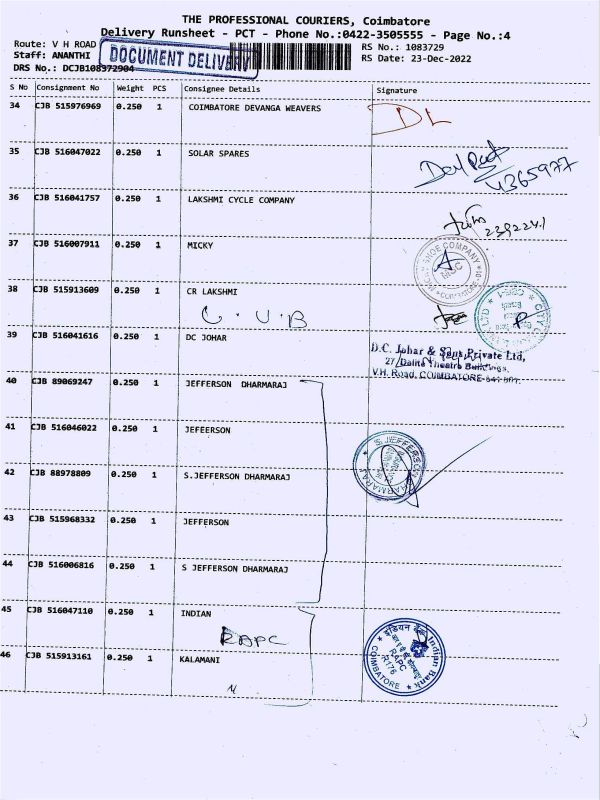 THE PROFESSIONAL COURIERS, Coimbatore
Delivery Runsheet - PCT - Phone No.:0422-3505555 - Page No.:4
Route: V H ROAD
RS No.: 1083729
Staff: ANANTHI
DOCUMENT DELIVERY
RS Date: 23-Dec-2022
DRS No.: DCJB108372904
S No Consignment No Weight PCS Consignee Details Signature
34 CJB 515976969 0.250 1 COIMBATORE DEVANGA WEAVERS
DL
35 CJB 516047022 0.250 1 SOLAR SPARES
4365977
36 CJB 516041757 0.250 1 LAKSHMI CYCLE COMPANY
2392241
37 CJB 516007911 0.250 1 MICKY
SHOE COMPANY
MSC
38 CJB 515913609 0.250 1 CR LAKSHMI
C.U.B
39 CJB 516041616 0.250 1 DC JOHAR
D.C. Johar & Sons Private Ltd,
27/ Theatre Buildings,
V.H. Road, COIMBATORE
40 CJB 89069247 0.250 1 JEFFERSON DHARMARAJ
41 CJB 516046022 0.250 1 JEFEERSON
S.JEFFERSON DHARMARAJ
42 CJB 88978809 0.250 1 S.JEFFERSON DHARMARAJ
43 CJB 515968332 0.250 1 JEFFERSON
44 CJB 516006816 0.250 1 S JEFFERSON DHARMARAJ
45 CJB 516047110 0.250 1 INDIAN
RAPC
इंडियन बैंक Indian Bank
RAPC
R176
COIMBATORE
46 CJB 515913161 0.250 1 KALAMANI